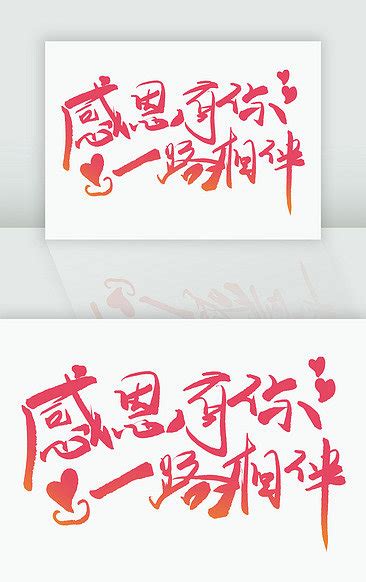 感恩有你
一路相伴
感恩有你
一路相伴